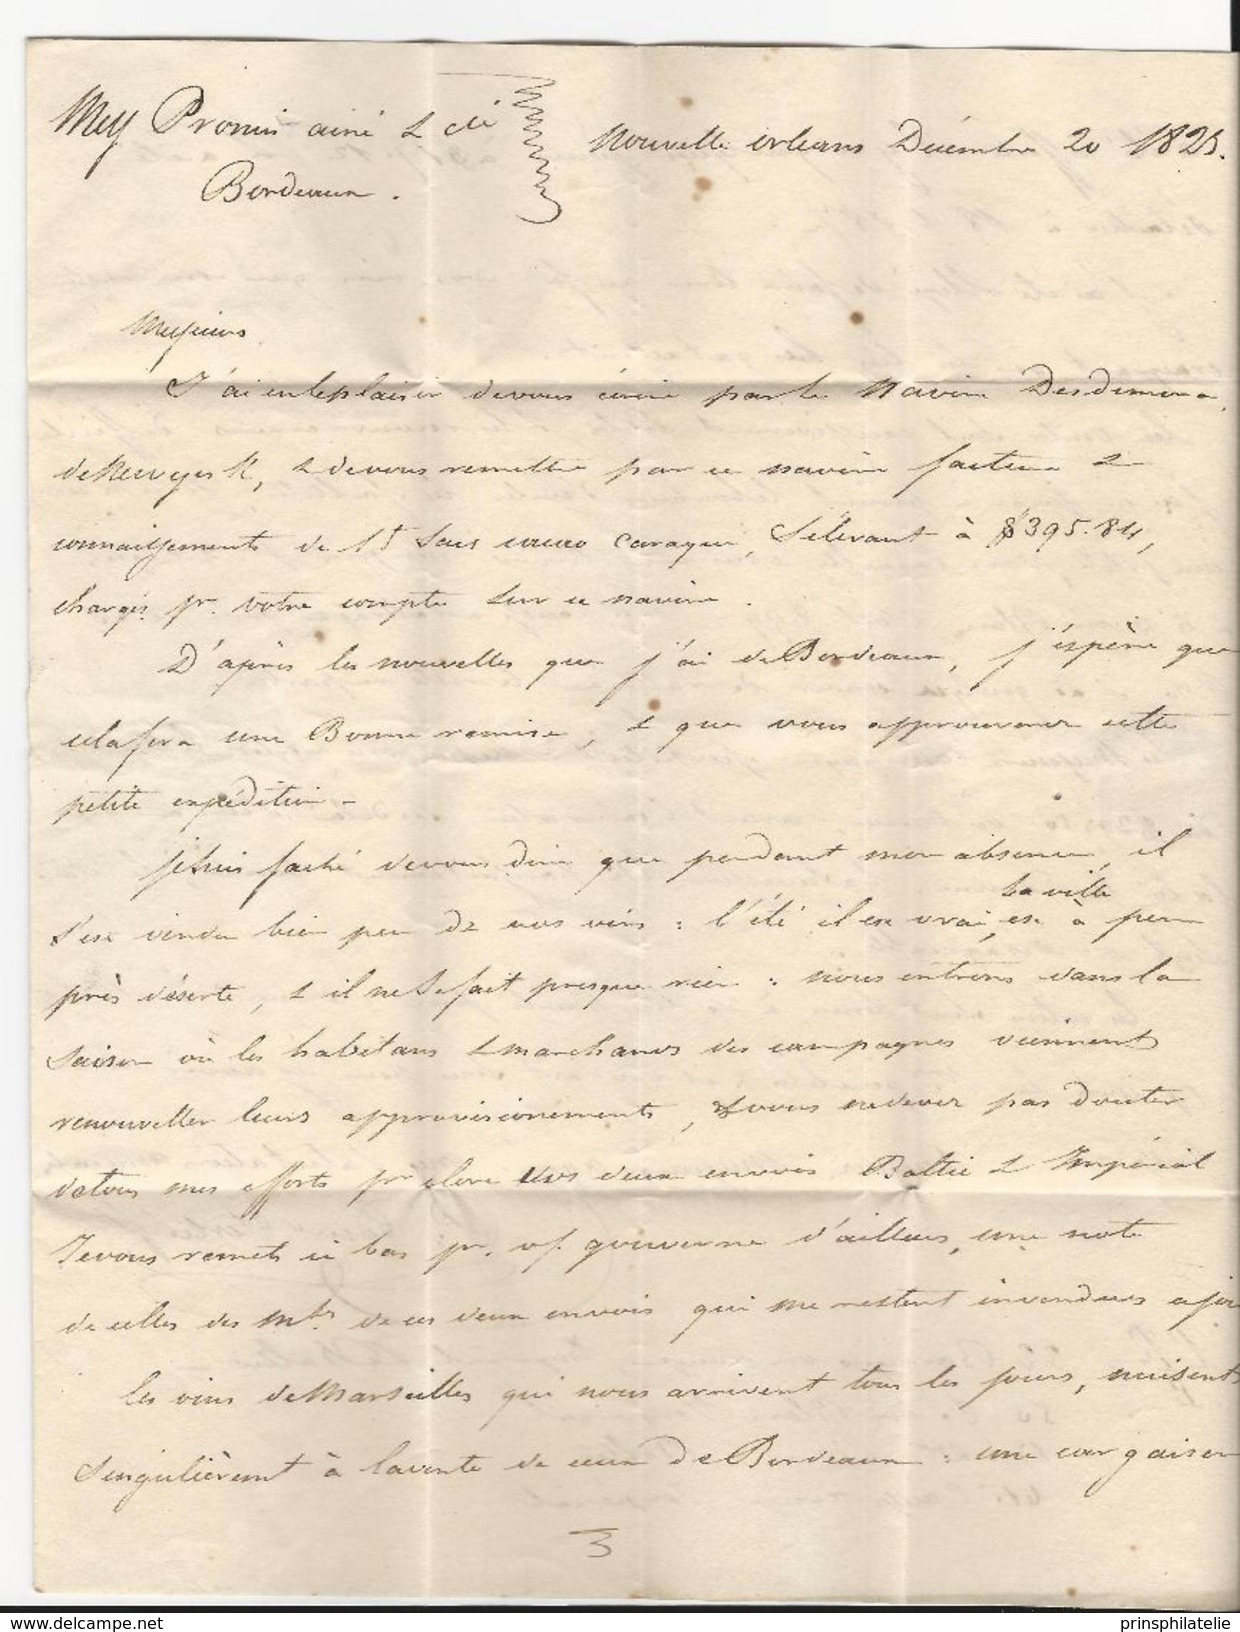 Mess Promis ainé & cie
Bordeaux.
Nouvelle orleans Décembre 20 1825.
Messieurs
J'ai eu le plaisir de vous écrire par le Navire Desdemona,
de New york, & de vous remettre par ce navire facture &
connaissements de 15 Sacs cacao Caraque, S'élevant à $395.84,
chargés pr. votre compte sur ce navire.
D'après les nouvelles que j'ai de Bordeaux, j'espère que
cela fera une Bonne remise, & que vous approuverez cette
petite expédition -
je suis faché de vous dire que pendant mon absence, il
S'est vendu bien peu de vos vins : l'été il est vrai, la ville est à peu
près déserte, & il ne se fait presque rien : nous entrons dans la
Saison où les habitans & marchands des campagnes viennent
renouveller leurs approvisionements, & vous ne devez pas douter
de tous mes efforts pr clore vos deux envois Baltic & Impérial
Je vous remets ici bas pr. vf. gouverne d'ailleurs, une note
de celles des mses de ces deux envois qui me restent invendues a jour
les vins de Marseilles qui nous arrivent tous les jours, nuisent
Singulièrement à la vente de ceux de Bordeaux : une cargaison
3
delcampe.net
prinsphilatelie